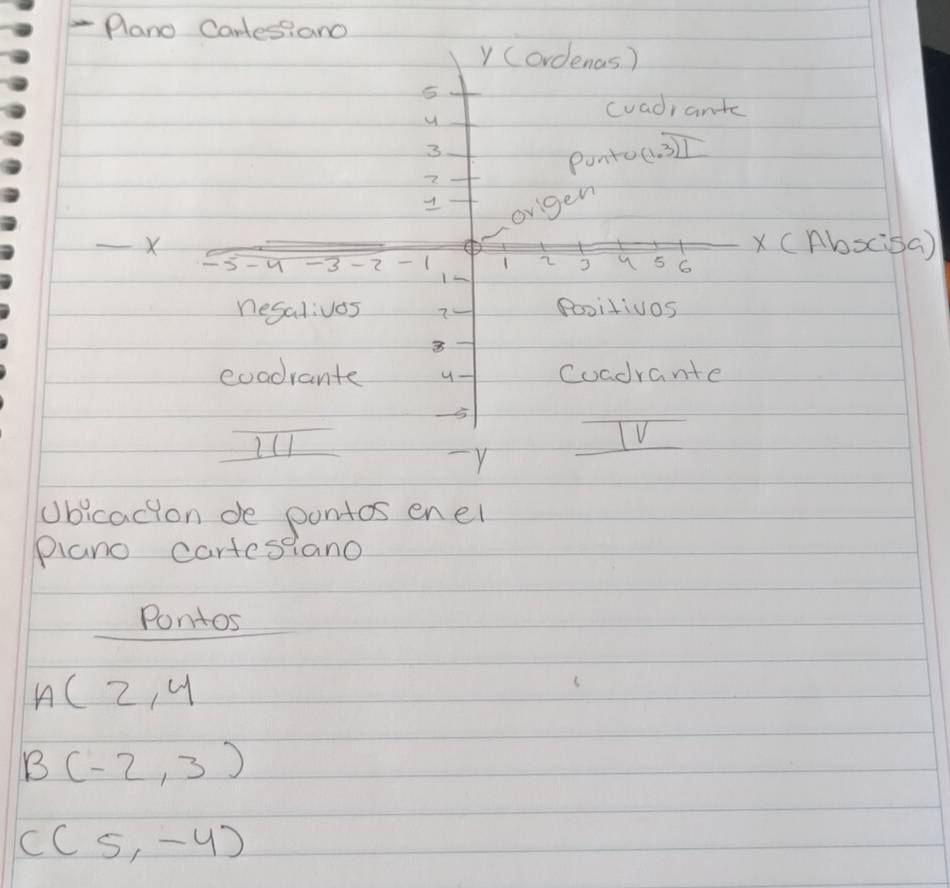 - Plano Cartesiano
Y (Ordenas)
5
4
3
2
1
cuadrante
Punto (1,3) I
origen
- X
-5 -4 -3 -2 -1
1 2 3 4 5 6
X (Abscisa)
1
2
3
4
-5
-Y
negativos
Positivos
cuadrante
Cuadrante
III
IV
Ubicacion de puntos en el
plano cartesiano
Puntos
A( 2,4
B (-2, 3)
C( 5, -4)